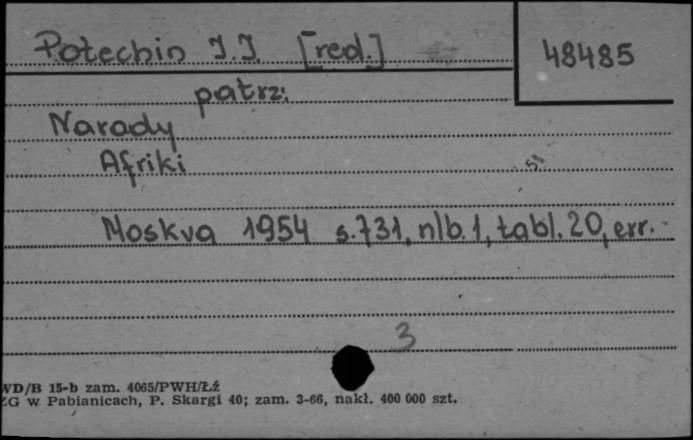 Potechin I.I. [red.]
48485
patrz:
Narady
Afriki
51
Moskva 1954 s.731, nlb.1, tabl.20, err.
3
WD/B 15-b zam. 4065/PWH/Łż
ZG w Pabianicach, P. Skargi 40; zam. 3-66, nakł. 400 000 szt.